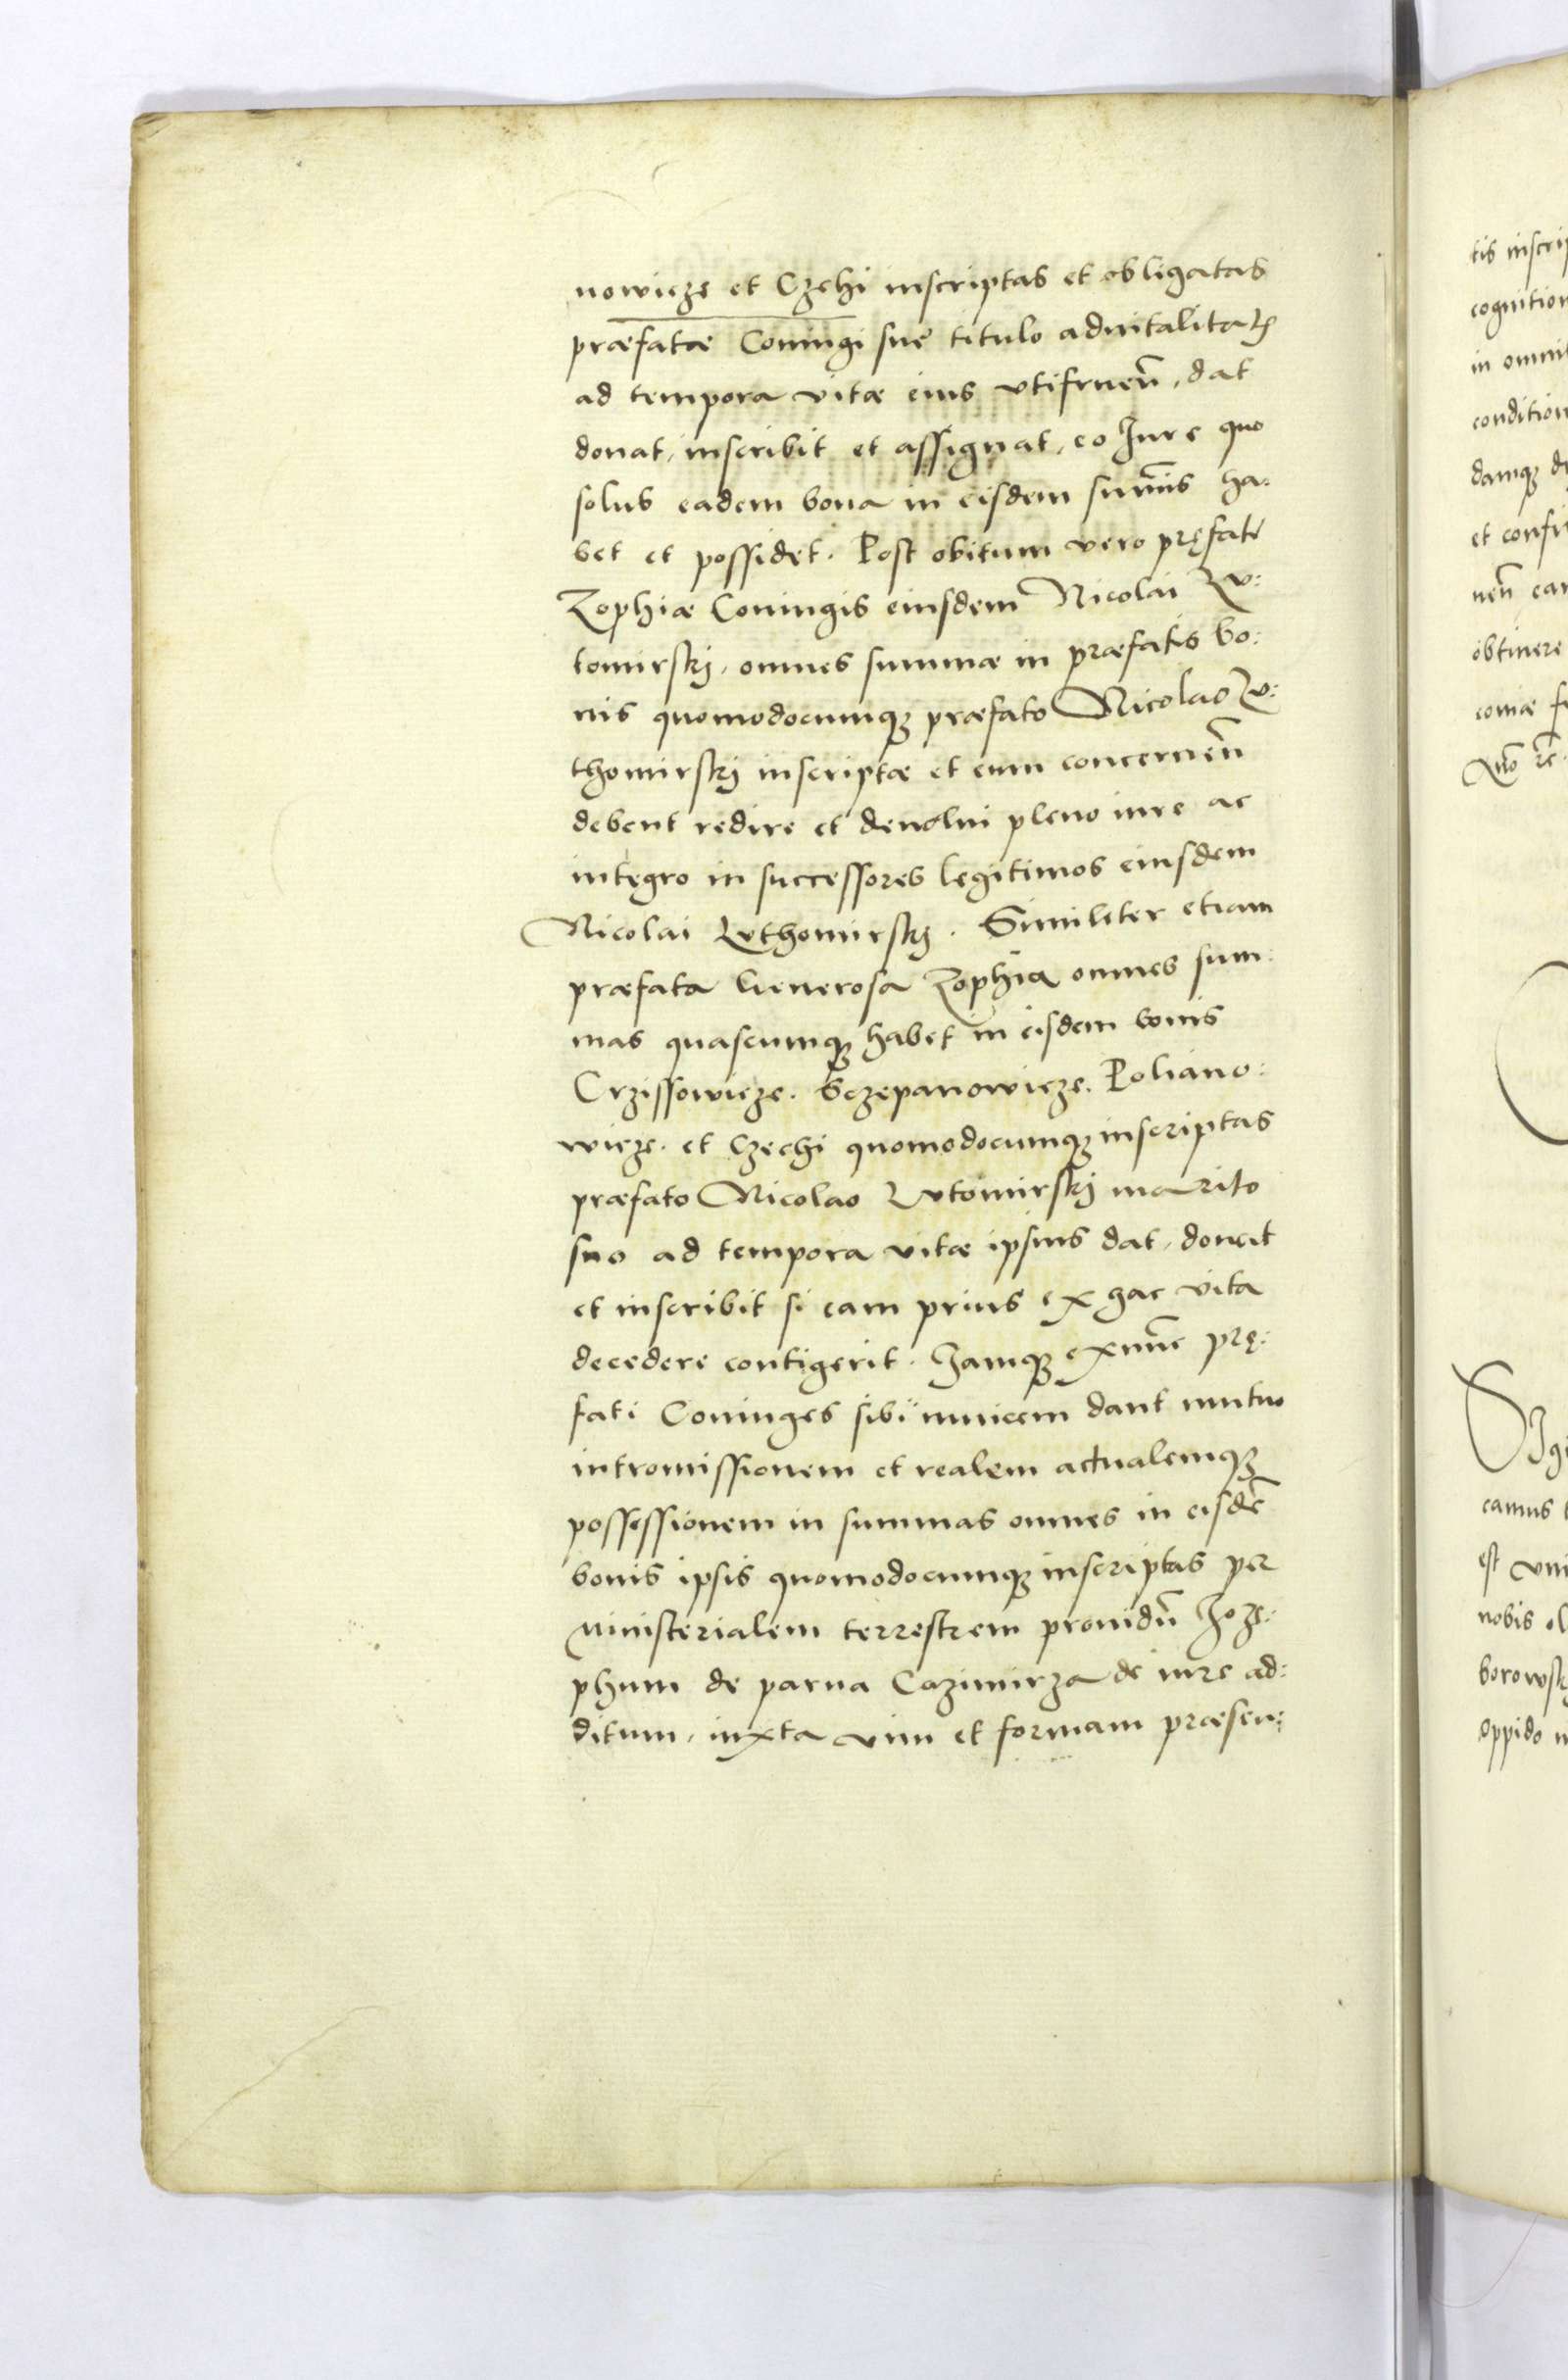 nowicze et Czechi inscriptas et obligatas
præfatæ Coniugi suę titulo aduitalitatis
ad tempora vitæ eius vtifruen̄, dat
donat, inscribit et assignat, eo Jure quo
solus eadem bona in eisdem sum̄is ha:
bet et possidet. Post obitum vero pręfatę
Zophiæ Coniugis eiusdem Nicolai Lu:
tomirskij, omnes summæ in præfatis bo:
nis quomodocumq3 præfato Nicolao Lu:
thomirskij inscriptæ et eum concernen̄
debent redire et deuolui pleno iure ac
integro in successores legitimos eiusdem
Nicolai Luthomirskij. Similiter etiam
præfata Generosa Zophia omnes sum:
mas quascumq3 habet in eisdem bonis
Crzissowicze. Sczepanowicze. Poliano:
wicze. et Czechi quomodocumq3 inscriptas
præfato Nicolao Lutomirskij marito
suo ad tempora vitæ ipsius dat, donat
et inscribit si eam prius ex hac vita
decedere contigerit. Jamq3 exnūc prę:
fati Coniuges sibi inuicem dant mutuo
intromissionem et realem actualemq3
possessionem in summas omnes in eisdē
bonis ipsis quomodocumq3 inscriptas per
ministerialem terrestrem prouidū Joze:
phum de parua Cazimirza de iure ad:
ditum, iuxta vim et formam præsen:
tis inscrip
cognition
in omni
condition
damq3
et confir
nen̄ ean
obtinere
coniæ
camus
est vni
nobis
borowsk
oppido